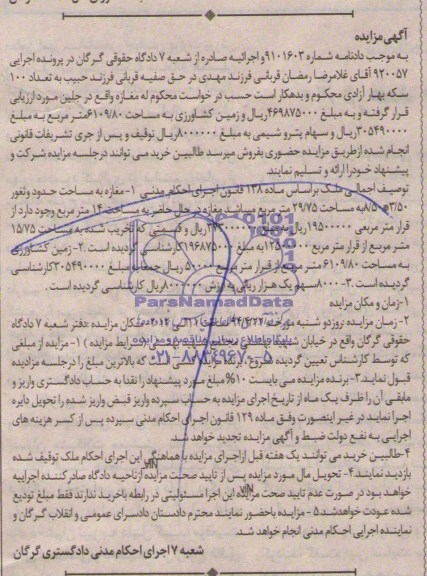 آگهی مزایده
به موجب دادنامه شماره ۹۱۰۱۶۰۳ و اجرائیه صادره از شعبه ۷ دادگاه حقوقی گرگان در پرونده اجرایی
۹۲۰۰۵۷ آقای غلامرضا رمضان قربانی فرزند مهدی در حق صفیه قربانی فرزند حبیب به تعداد ۱۰۰
سکه بهار آزادی محکوم و بدهکار است حسب درخواست محکوم له مغازه واقع در جلین مورد ارزیابی
قرار گرفته و به مبلغ ۴۶۹۸۷۵۰۰۰ ریال و زمین کشاورزی به مساحت ۶۱۰۹/۸۰ متر مربع به مبلغ
۳۰۵۴۹۰۰۰۰ ریال و سهام پترو شیمی به مبلغ ۸۰۰۰۰۰۰ ریال توقیف و پس از جری تشریفات قانونی
انجام شده از طریق مزایده حضوری بفروش میرسد طالبین خرید می توانند در جلسه مزایده شرکت و
پیشنهاد خود را ارائه و تسلیم نمایند
توصیف اجمالی ملک براساس ماده ۱۳۸ قانون اجرای احکام مدنی ۱- مغازه به مساحت حدود وثغور
۳/۵۰*۸/۵ به مساحت ۲۹/۷۵ متر مربع میباشد مغازه در حال حاضر به مساحت ۱۴ متر مربع وجود دارد از
قرار متر مربعی ۱۹۵۰۰۰۰۰ ریال به مبلغ ریال و قسمتی که تخریب شده به مساحت ۱۵/۷۵
متر مربع از قرار متر مربع ۱۲۵۰۰۰۰۰ به مبلغ ۱۹۶۸۷۵۰۰۰ کارشناسی گردیده است ۲- زمین کشاورزی
به مساحت ۶۱۰۹/۸۰ متر مربع از قرار متر مربع ۵۰۰۰۰ ریال جمعا به مبلغ ۳۰۵۴۹۰۰۰۰ کارشناسی
گردیده است ۳- ۸۰۰۰ سهم یک هزار ریالی به ارزش ۸۰۰۰۰۰۰ ریال کارشناسی گردیده است.
۱- زمان و مکان مزایده
۲- زمان مزایده روز دو شنبه مورخه ۹۴/۴/۲۲ ساعت ۱۱ الی ۱۲ مکان مزایده دفتر شعبه ۷ دادگاه
حقوقی گرگان واقع در خیابان شرایط مزایده ) ۱- مزایده از مبلغی
که توسط کارشناس تعیین گردیده شروع، برنده مزایده کسی است که بالاترین مبلغ را در جلسه مزایده
قبول نماید. ۳- برنده مزایده می بایست ۱۰٪ مبلغ مورد پیشنهاد را نقدا به حساب دادگستری واریز و
مابقی آن را ظرف یک ماه از تاریخ اجرای مزایده به حساب سپرده واریز قبض واریز شده را تحویل دایره
اجرا نماید در غیر اینصورت وفق ماده ۱۲۹ قانون اجرای احکام مدنی سپرده پس از کسر هزینه های
اجرایی به نفع دولت ضبط و آگهی مزایده تجدید خواهد شد.
۴- طالبین خرید می توانند یک هفته قبل از اجرای مزایده با هماهنگی این اجرای احکام ملک توقیف شده
بازدید نمایند. ۴- تحویل مال مورد مزایده پس از تایید صحت مزایده از ناحیه دادگاه صادر کننده اجراییه
خواهد بود در صورت عدم تایید صحت مزایده این اجرا مسئولیتی در رابطه با خرید ندارند فقط مبلغ تودیع
شده عودت خواهد شد ۵- مزایده با حضور نمایند محترم دادستان دادسرای عمومی و انقلاب گرگان و
نماینده اجرایی احکام مدنی انجام خواهد شد.
شعبه ۷ اجرای احکام مدنی دادگستری گرگان
ParsNamadData
پایگاه اطلاع رسانی مناقصه و مزایده
۰۲۱-۸۸۳۴۹۶۷۰-۵